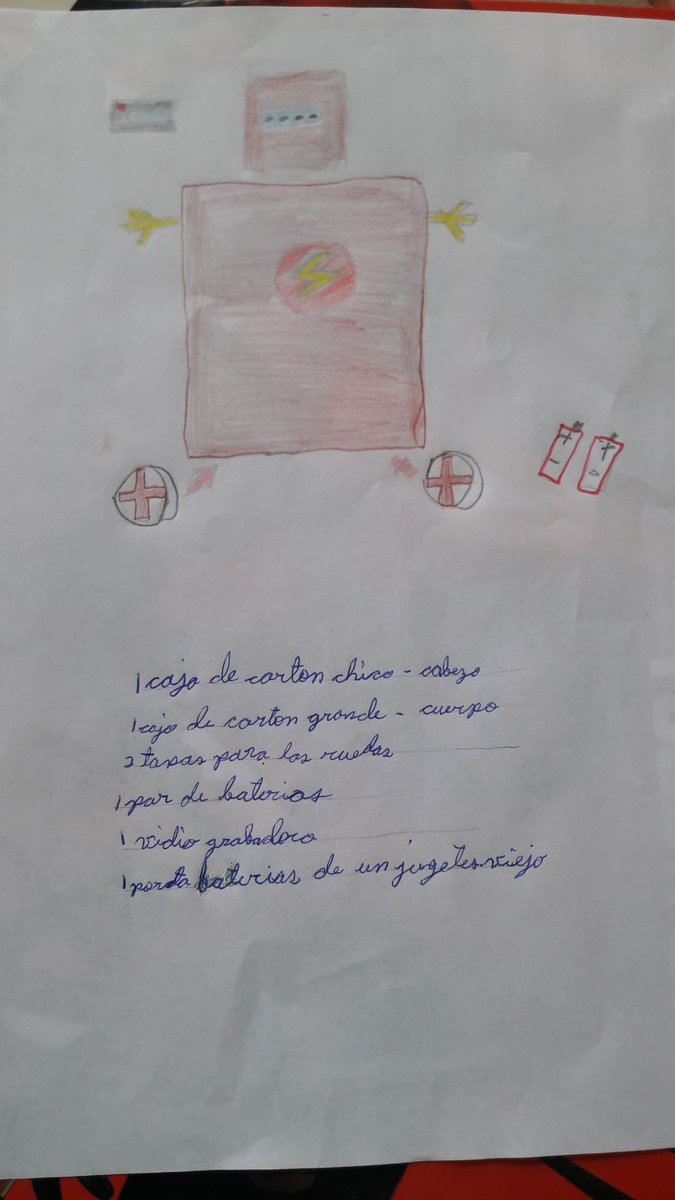 1 caja de carton chico - cabeza
1 caja de carton grande - cuerpo
2 tapas para las ruedas
1 par de baterias
1 vidio grabadora
1 porta baterias de un jugetes viejo
+
-
+
-